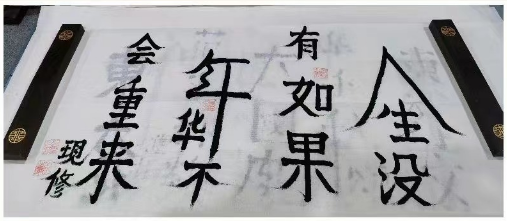 人生没
有如果
年华不
会重来
现修